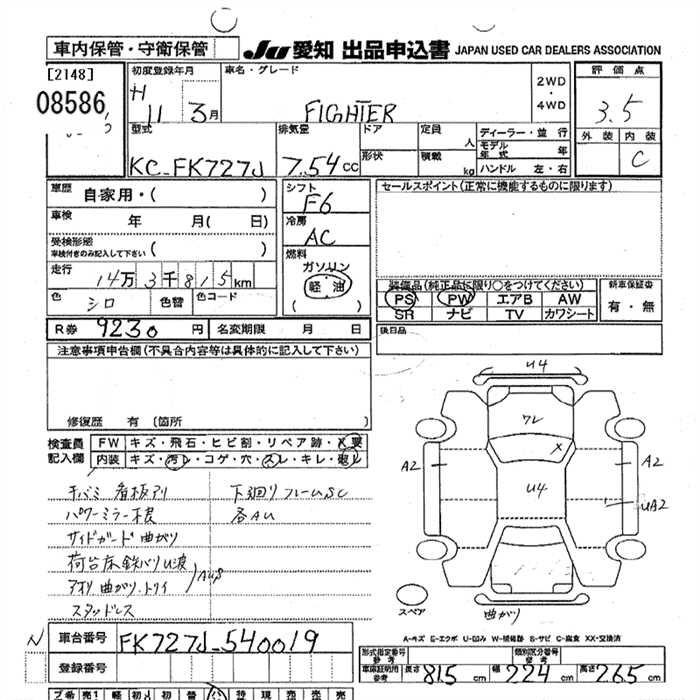 車内保管・守衛保管
JU 愛知 出品申込書 JAPAN USED CAR DEALERS ASSOCIATION
[2148]
08586
初度登録年月
H 11 3月
車名・グレード
FIGHTER
2WD
・
4WD
評価点
3.5
外装 内装
C
型式
KC-FK727J
排気量
7.54cc
ドア
形状
定員 人
積載 kg
ディーラー・並行
モデル年式 年
ハンドル 左・右
車歴 自家用・( )
車検 年 月( 日)
受検形態 ( )
車検付きのみ記入して下さい
走行 14万3千815km
色 シロ 色替 色コード
シフト
F6
冷房
AC
燃料
ガソリン
軽油
( )
セールスポイント(正常に機能するものに限ります)
装備品(純正品に限り○をつけてください)
PS PW エアB AW
SR ナビ TV カワシート
新車保証書
有・無
後日品
R券 9230円 名変期限 月 日
注意事項申告欄(不具合内容等は具体的に記入して下さい)
修復歴 有 (箇所
検査員記入欄
FW キズ・飛石・ヒビ割・リペア跡・X要
内装 キズ・汚レ・コゲ・穴・スレ・キレ・
看板アリ
下廻りフレームSC
パワーミラー
各AU
サイドガード曲がり
荷台床鉄バリU波
アオリ曲がり・
スタッドレス
U4
ワレ
X
A2
U4
A2
UA2
スペア
曲がり
A-キズ E-エクボ U-凹み W-補修跡 S-サビ C-腐食 XX-交換済
N
車台番号 FK727J-540019
登録番号
形式指定番号
参考
類別区分番号
参考
車庫証明用
参考
長さ 815cm 幅 224cm 高さ 265cm